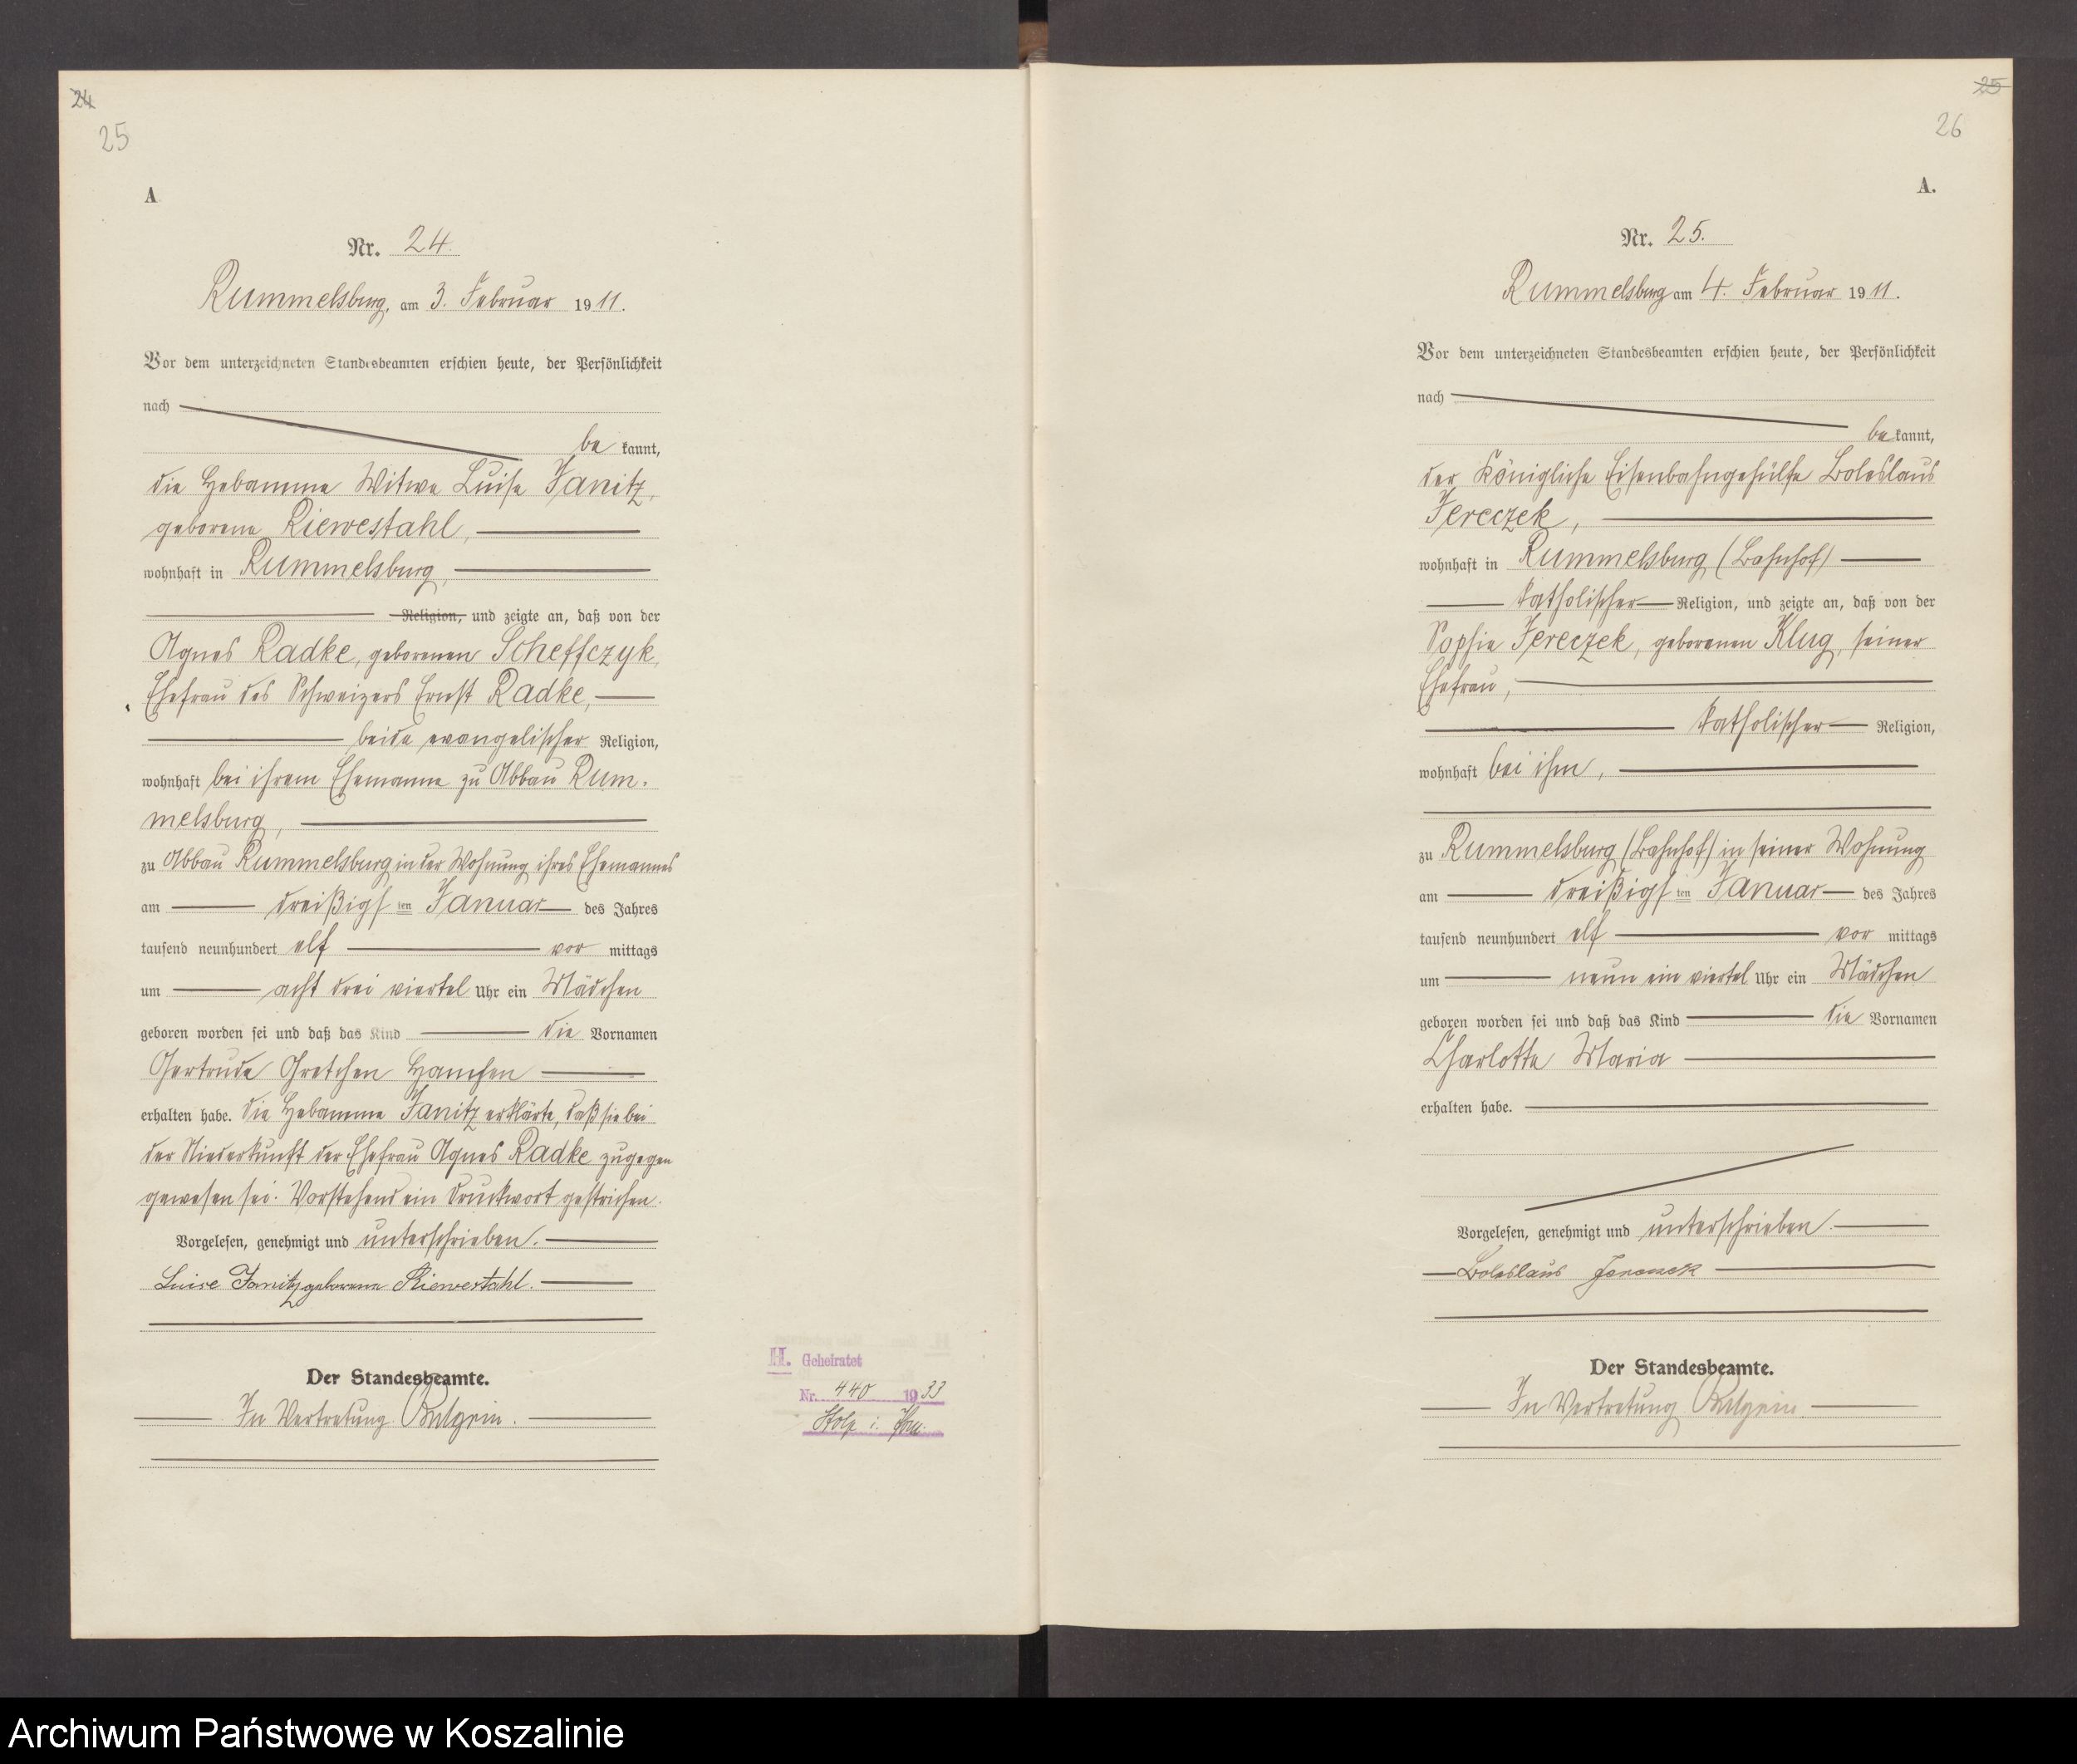 24
25
A
Nr. 24.
Rummelsburg, am 3. Februar 1911.
Vor dem unterzeichneten Standesbeamten erschien heute, der Persönlichkeit
nach
be kannt,
die Hebamme Witwe Luise Janitz,
geborene Riewestahl,
wohnhaft in Rummelsburg,
Religion, und zeigte an, daß von der
Agnes Radke, geborenen Scheffczyk,
Ehefrau des Schweizers Ernst Radke,
beide evangelischer Religion,
wohnhaft bei ihrem Ehemanne zu Abbau Rum-
melsburg,
zu Abbau Rummelsburg in der Wohnung ihres Ehemannes
am dreißigsten Januar des Jahres
tausend neunhundert elf vor mittags
um acht drei viertel Uhr ein Mädchen
geboren worden sei und daß das Kind die Vornamen
Gertrude Gretchen
erhalten habe. Die Hebamme Janitz erklärte, daß sie bei
der Niederkunft der Ehefrau Agnes Radke zugegen
gewesen sei. Vorstehend ein Druckwort gestrichen.
Vorgelesen, genehmigt und unterschrieben.
Luise Janitz geborene Riewestahl.
Der Standesbeamte.
In Vertretung
H. Geheiratet
Nr. 440 1933
Stolp i. Pom.
25
26
A.
Nr. 25.
Rummelsburg am 4. Februar 1911.
Vor dem unterzeichneten Standesbeamten erschien heute, der Persönlichkeit
nach
be kannt,
der Königliche Eisenbahngehülfe Boleslaus
Jereczek,
wohnhaft in Rummelsburg (Bahnhof)
katholischer Religion, und zeigte an, daß von der
Sophie Jereczek, geborenen Klug, seiner
Ehefrau,
katholischer Religion,
wohnhaft bei ihm,
zu Rummelsburg (Bahnhof) in seiner Wohnung
am dreißigsten Januar des Jahres
tausend neunhundert elf vor mittags
um neun ein viertel Uhr ein Mädchen
geboren worden sei und daß das Kind die Vornamen
Charlotte Maria
erhalten habe.
Vorgelesen, genehmigt und unterschrieben.
Boleslaus Jereczek
Der Standesbeamte.
In Vertretung
Archiwum Państwowe w Koszalinie